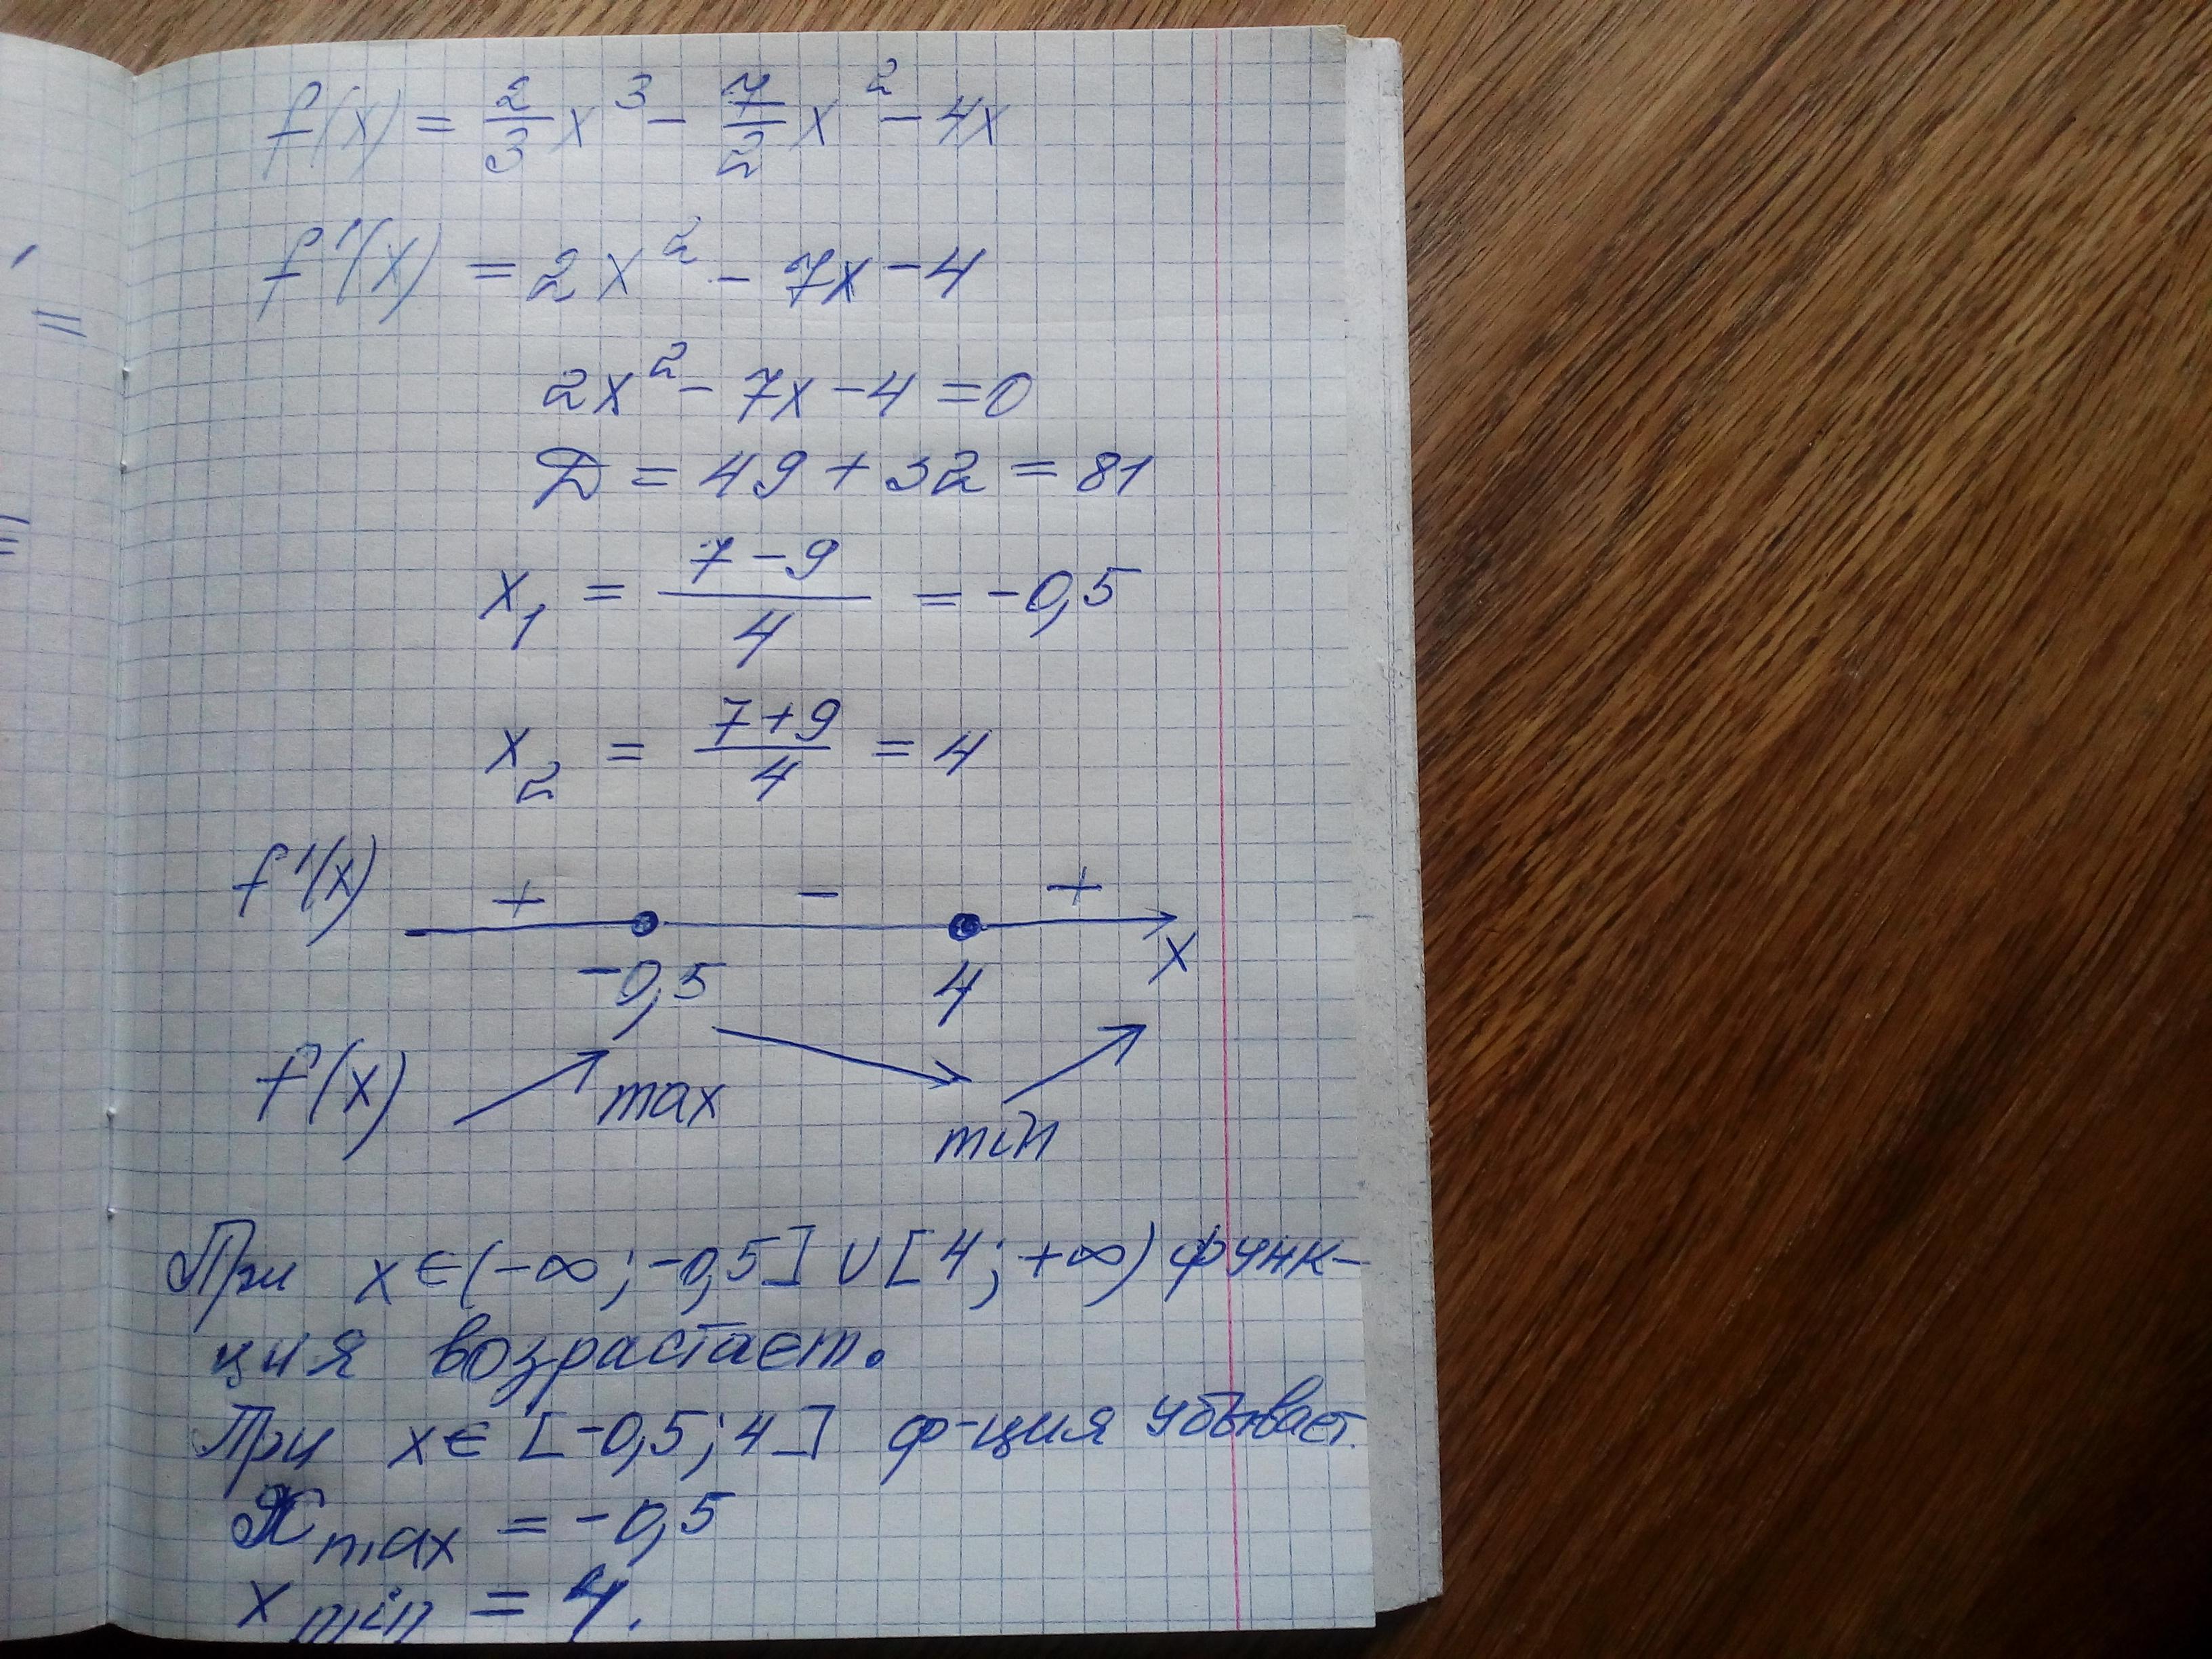 f(x) = 2/3 x³ - 7/2 x² - 4x
f'(x) = 2x² - 7x - 4
2x² - 7x - 4 = 0
D = 49 + 32 = 81
x₁ = (7 - 9)/4 = -0,5
x₂ = (7 + 9)/4 = 4
f'(x) + - +
-0,5 4 x
f(x) max
min
При x ∈ (-∞; -0,5] ∪ [4; +∞) функ-
ция возрастает.
При x ∈ [-0,5; 4] ф-ция убывает.
x max = -0,5
x min = 4.